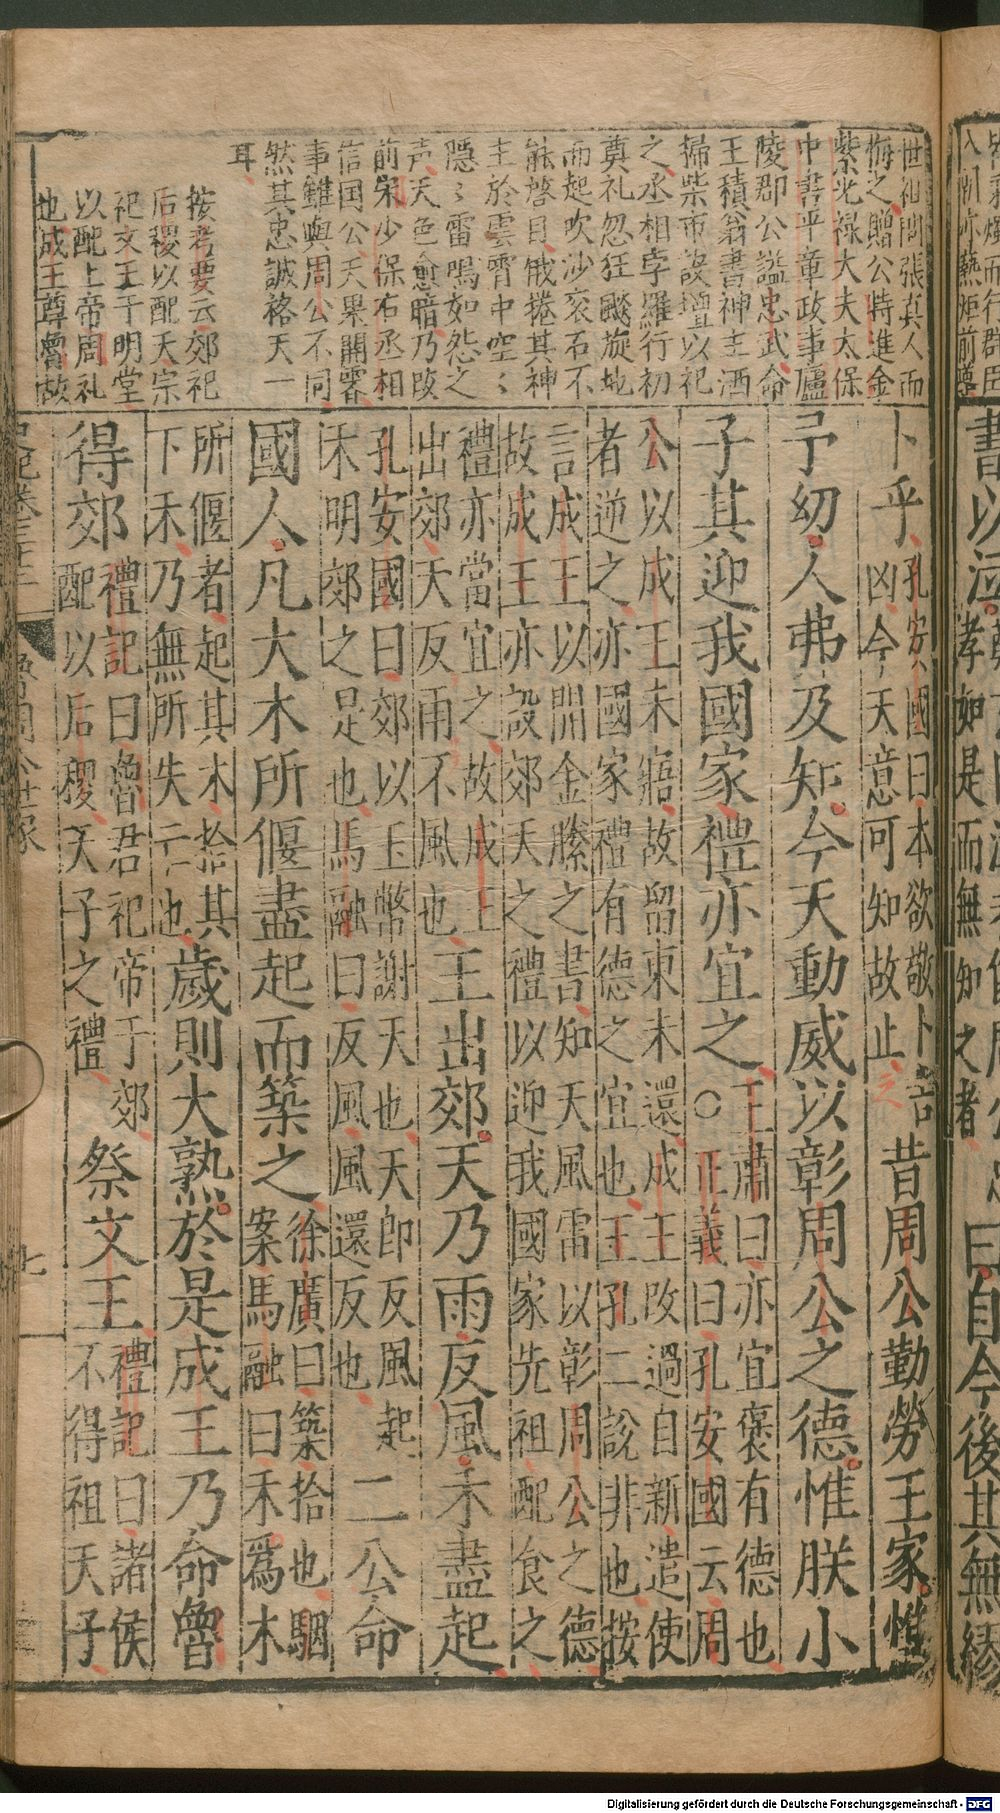 世祖問張真人而
悔之贈公特進金
紫光禄大夫太保
中書平章政事廬
陵郡公謚忠武命
王積翁書神主洒
掃柴市設壇以祀
之丞相孛羅行初
奠礼忽狂飈旋地
而起吹沙衮石不
能啓目俄捲其神
主於雲霄中空〻
隠〻雷鳴如怨之
声天色愈暗乃改
前宋少保右丞相
信国公天果開霽
事雖與周公不同
然其忠誠格天一
耳
按考要云郊祀
后稷以配天宗
祀文王于明堂
以配上帝周礼
也成王尊魯故
卜乎
孔安國曰本欲敬卜吉
凶今天意可知故止之
昔周公勤勞王家惟
予幼人弗及知今天動威以彰周公之德惟朕小
子其迎我國家禮亦宜之
王肅曰亦宜褒有德也
○正義曰孔安國云周
公以成王未寤故留東未還成王改過自新遣使
者逆之亦國家禮有德之宜也王孔二說非也按
言成王以開金縢之書知天風雷以彰周公之德
故成王亦設郊天之禮以迎我國家先祖配食之
禮亦當宜之故成王
出郊天反雨不風也
王出郊天乃雨反風禾盡起
孔安國曰郊以玉幣謝天也天即反風起
禾明郊之是也馬融曰反風風還反也
二公命
國人凡大木所偃盡起而築之
徐廣曰築拾也駰
案馬融曰禾爲木
所偃者起其木拾其
下禾乃無所失亡也
歲則大熟於是成王乃命魯
得郊
禮記曰魯君祀帝于郊
配以后稷天子之禮
祭文王
禮記曰諸侯
不得祖天子
七
書以泣
孝如是而無知之者
曰自今後其無繆
Digitalisierung gefördert durch die Deutsche Forschungsgemeinschaft - DFG